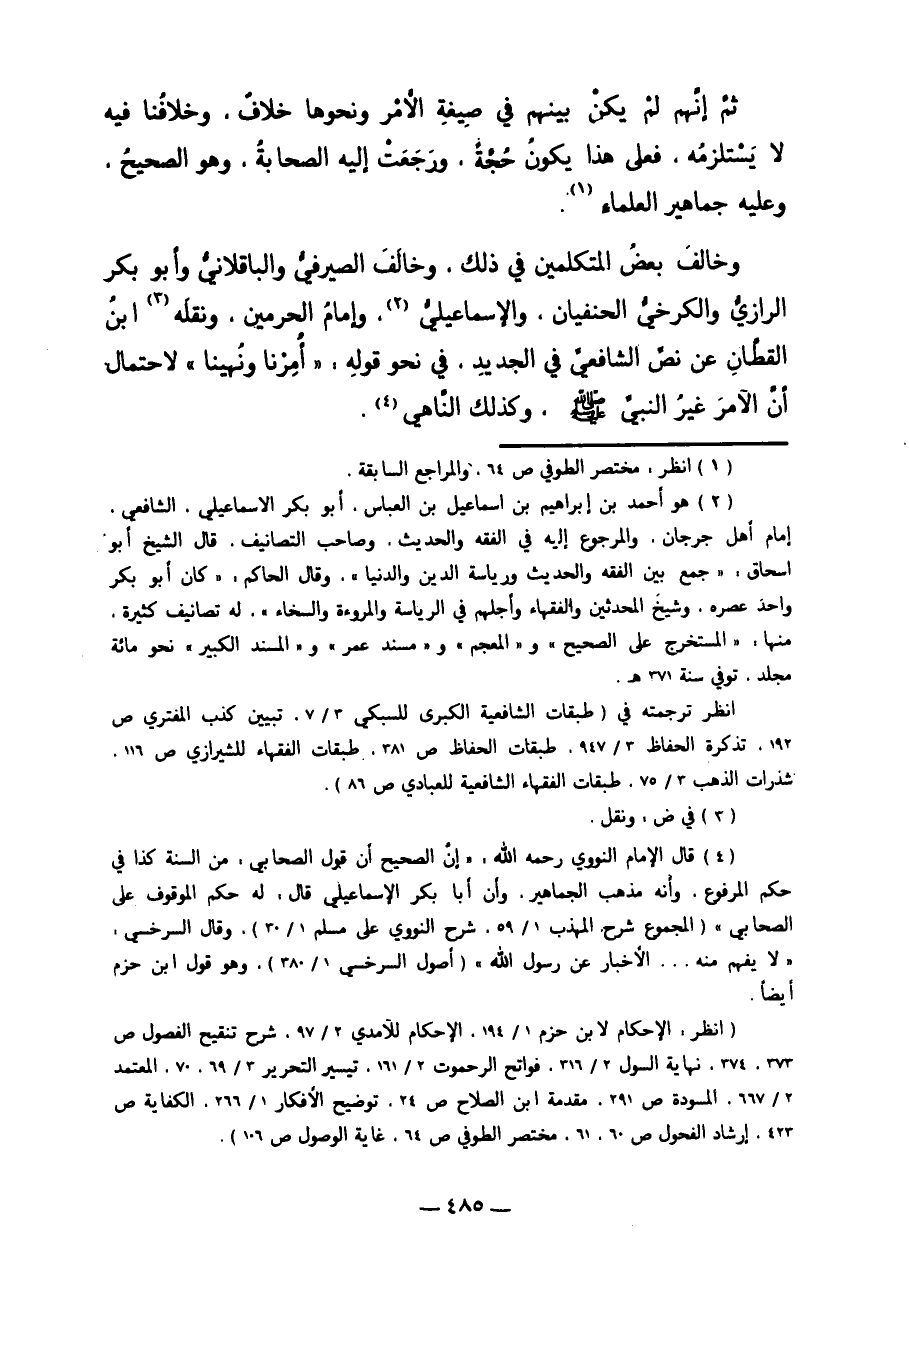 ثمَّ إنَّهم لمْ يكنْ بينهم في صِيغةِ الأمْر ونحوها خلافٌ ، وخلافُنا فيه
لا يَسْتلزمُه ، فعلى هذا يكونُ حُجَّةً ، ورَجَعَتْ إليه الصحابةُ ، وهو الصحيحُ ،
وعليه جماهير العلماء (١).
وخالفَ بعضُ المتكلمين في ذلك ، وخالَفَ الصيرفيُّ والباقلانيُّ وأبو بكر
الرازيُّ والكرخيُّ الحنفيان ، والإسماعيليُّ (٢)، وإمامُ الحرمين ، ونقلَه (٣) ابنُ
القطَّانِ عن نصِّ الشافعيِّ في الجديدِ ، في نحو قولِهِ : « أُمِرْنا ونُهينا » لاحتمال
أنَّ الآمرَ غيرُ النبيِّ ﷺ ، وكذلك النَّاهي (٤) .
( ١ ) انظر : مختصر الطوفي ص ٦٤ ، والمراجع السابقة .
( ٢ ) هو أحمد بن إبراهيم بن اسماعيل بن العباس ، أبو بكر الاسماعيلي ، الشافعي ،
إمام أهل جرجان ، والمرجوع إليه في الفقه والحديث ، وصاحب التصانيف . قال الشيخ أبو
اسحاق : « جمع بين الفقه والحديث ورياسة الدين والدنيا » ، وقال الحاكم : « كان أبو بكر
واحدَ عصره ، وشيخَ المحدثين والفقهاء وأجلهم في الرياسة والمروءة والسخاء » . له تصانيف كثيرة ،
منها : « المستخرج على الصحيح » و « المعجم » و « مسند عمر » و « المسند الكبير » نحو مائة
مجلد . توفي سنة ٣٧١ هـ .
انظر ترجمته في ( طبقات الشافعية الكبرى للسبكي ٣ / ٧ ، تبيين كذب المفتري ص
١٩٢ ، تذكرة الحفاظ ٣ / ٩٤٧ ، طبقات الحفاظ ص ٣٨١ ، طبقات الفقهاء للشيرازي ص ١١٦ ،
شذرات الذهب ٣ / ٧٥ ، طبقات الفقهاء الشافعية للعبادي ص ٨٦ ) .
( ٣ ) في ض : ونقل .
( ٤ ) قال الإمام النووي رحمه الله : « إنَّ الصحيح أن قول الصحابي : من السنة كذا في
حكم المرفوع . وأنه مذهب الجماهير . وأن أبا بكر الإسماعيلي قال : له حكم الموقوف على
الصحابي » ( المجموع شرح المهذب ١ / ٥٩ ، شرح النووي على مسلم ١ / ٣٠ ) . وقال السرخسي :
« لا يفهم منه ... الأخبار عن رسول الله » ( أصول السرخسي ١ / ٣٨٠ ) ، وهو قول ابن حزم
أيضاً .
( انظر : الإحكام لابن حزم ١ / ١٩٤ ، الإحكام للآمدي ٢ / ٩٧ ، شرح تنقيح الفصول ص
٣٧٣ ، ٣٧٤ ، نهاية السول ٢ / ٣١٦ ، فواتح الرحموت ٢ / ١٦١ ، تيسير التحرير ٣ / ٦٩ ، ٧٠ ، المعتمد
٢ / ٦٦٧ ، المسودة ص ٢٩١ ، مقدمة ابن الصلاح ص ٢٤ ، توضيح الأفكار ١ / ٢٦٦ ، الكفاية ص
٤٢٣ ، إرشاد الفحول ص ٦٠ ، ٦١ ، مختصر الطوفي ص ٦٤ ، غاية الوصول ص ١٠٦ ) .
— ٤٨٥ —